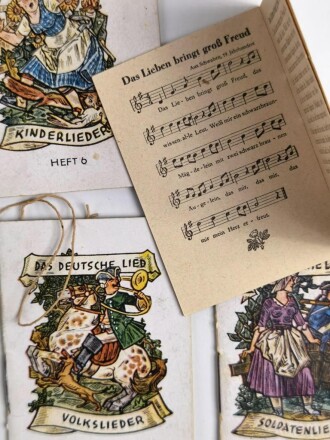 KINDERLIEDER
HEFT 6
Das Lieben bringt groß Freud
Aus Schwaben, 19. Jahrhundert
Das Lie - ben bringt groß Freud, das
wissen al-le Leut. Weiß mir ein schwarzbrau-
Mäg - de-lein mit zwei schwarz brau - nen
Äu - ge-lein, das mir, das mir, das
mir mein Herz er - freut.
DAS DEUTSCHE LIED
VOLKSLIEDER
SOLDATENLIE